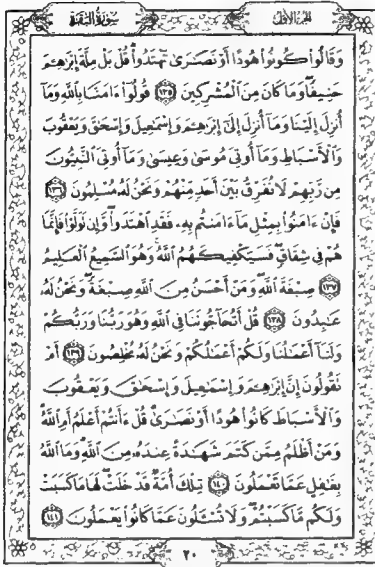 سورة البقرة
الجزء الأول
وَقَالُوا۟ كُونُوا۟ هُودًا أَوْ نَصَـٰرَىٰ تَهْتَدُوا۟ ۗ قُلْ بَلْ مِلَّةَ إِبْرَٰهِـۧمَ
حَنِيفًا ۖ وَمَا كَانَ مِنَ ٱلْمُشْرِكِينَ ١٣٥ قُولُوٓا۟ ءَامَنَّا بِٱللَّهِ وَمَآ
أُنزِلَ إِلَيْنَا وَمَآ أُنزِلَ إِلَىٰٓ إِبْرَٰهِـۧمَ وَإِسْمَـٰعِيلَ وَإِسْحَـٰقَ وَيَعْقُوبَ
وَٱلْأَسْبَاطِ وَمَآ أُوتِىَ مُوسَىٰ وَعِيسَىٰ وَمَآ أُوتِىَ ٱلنَّبِيُّونَ
مِن رَّبِّهِمْ لَا نُفَرِّقُ بَيْنَ أَحَدٍ مِّنْهُمْ وَنَحْنُ لَهُۥ مُسْلِمُونَ ١٣٦
فَإِنْ ءَامَنُوا۟ بِمِثْلِ مَآ ءَامَنتُم بِهِۦ فَقَدِ ٱهْتَدَوا۟ ۖ وَّإِن تَوَلَّوْا۟ فَإِنَّمَا
هُمْ فِى شِقَاقٍ ۖ فَسَيَكْفِيكَهُمُ ٱللَّهُ ۚ وَهُوَ ٱلسَّمِيعُ ٱلْعَلِيمُ
١٣٧ صِبْغَةَ ٱللَّهِ ۖ وَمَنْ أَحْسَنُ مِنَ ٱللَّهِ صِبْغَةً ۖ وَنَحْنُ لَهُۥ
عَـٰبِدُونَ ١٣٨ قُلْ أَتُحَآجُّونَنَا فِى ٱللَّهِ وَهُوَ رَبُّنَا وَرَبُّكُمْ
وَلَنَآ أَعْمَـٰلُنَا وَلَكُمْ أَعْمَـٰلُكُمْ وَنَحْنُ لَهُۥ مُخْلِصُونَ ١٣٩ أَمْ
تَقُولُونَ إِنَّ إِبْرَٰهِـۧمَ وَإِسْمَـٰعِيلَ وَإِسْحَـٰقَ وَيَعْقُوبَ
وَٱلْأَسْبَاطَ كَانُوا۟ هُودًا أَوْ نَصَـٰرَىٰ ۗ قُلْ ءَأَنتُمْ أَعْلَمُ أَمِ ٱللَّهُ ۗ
وَمَنْ أَظْلَمُ مِمَّن كَتَمَ شَهَـٰدَةً عِندَهُۥ مِنَ ٱللَّهِ ۗ وَمَا ٱللَّهُ
بِغَـٰفِلٍ عَمَّا تَعْمَلُونَ ١٤٠ تِلْكَ أُمَّةٌ قَدْ خَلَتْ ۖ لَهَا مَا كَسَبَتْ
وَلَكُم مَّا كَسَبْتُمْ ۖ وَلَا تُسْـَٔلُونَ عَمَّا كَانُوا۟ يَعْمَلُونَ ١٤١
٢٠